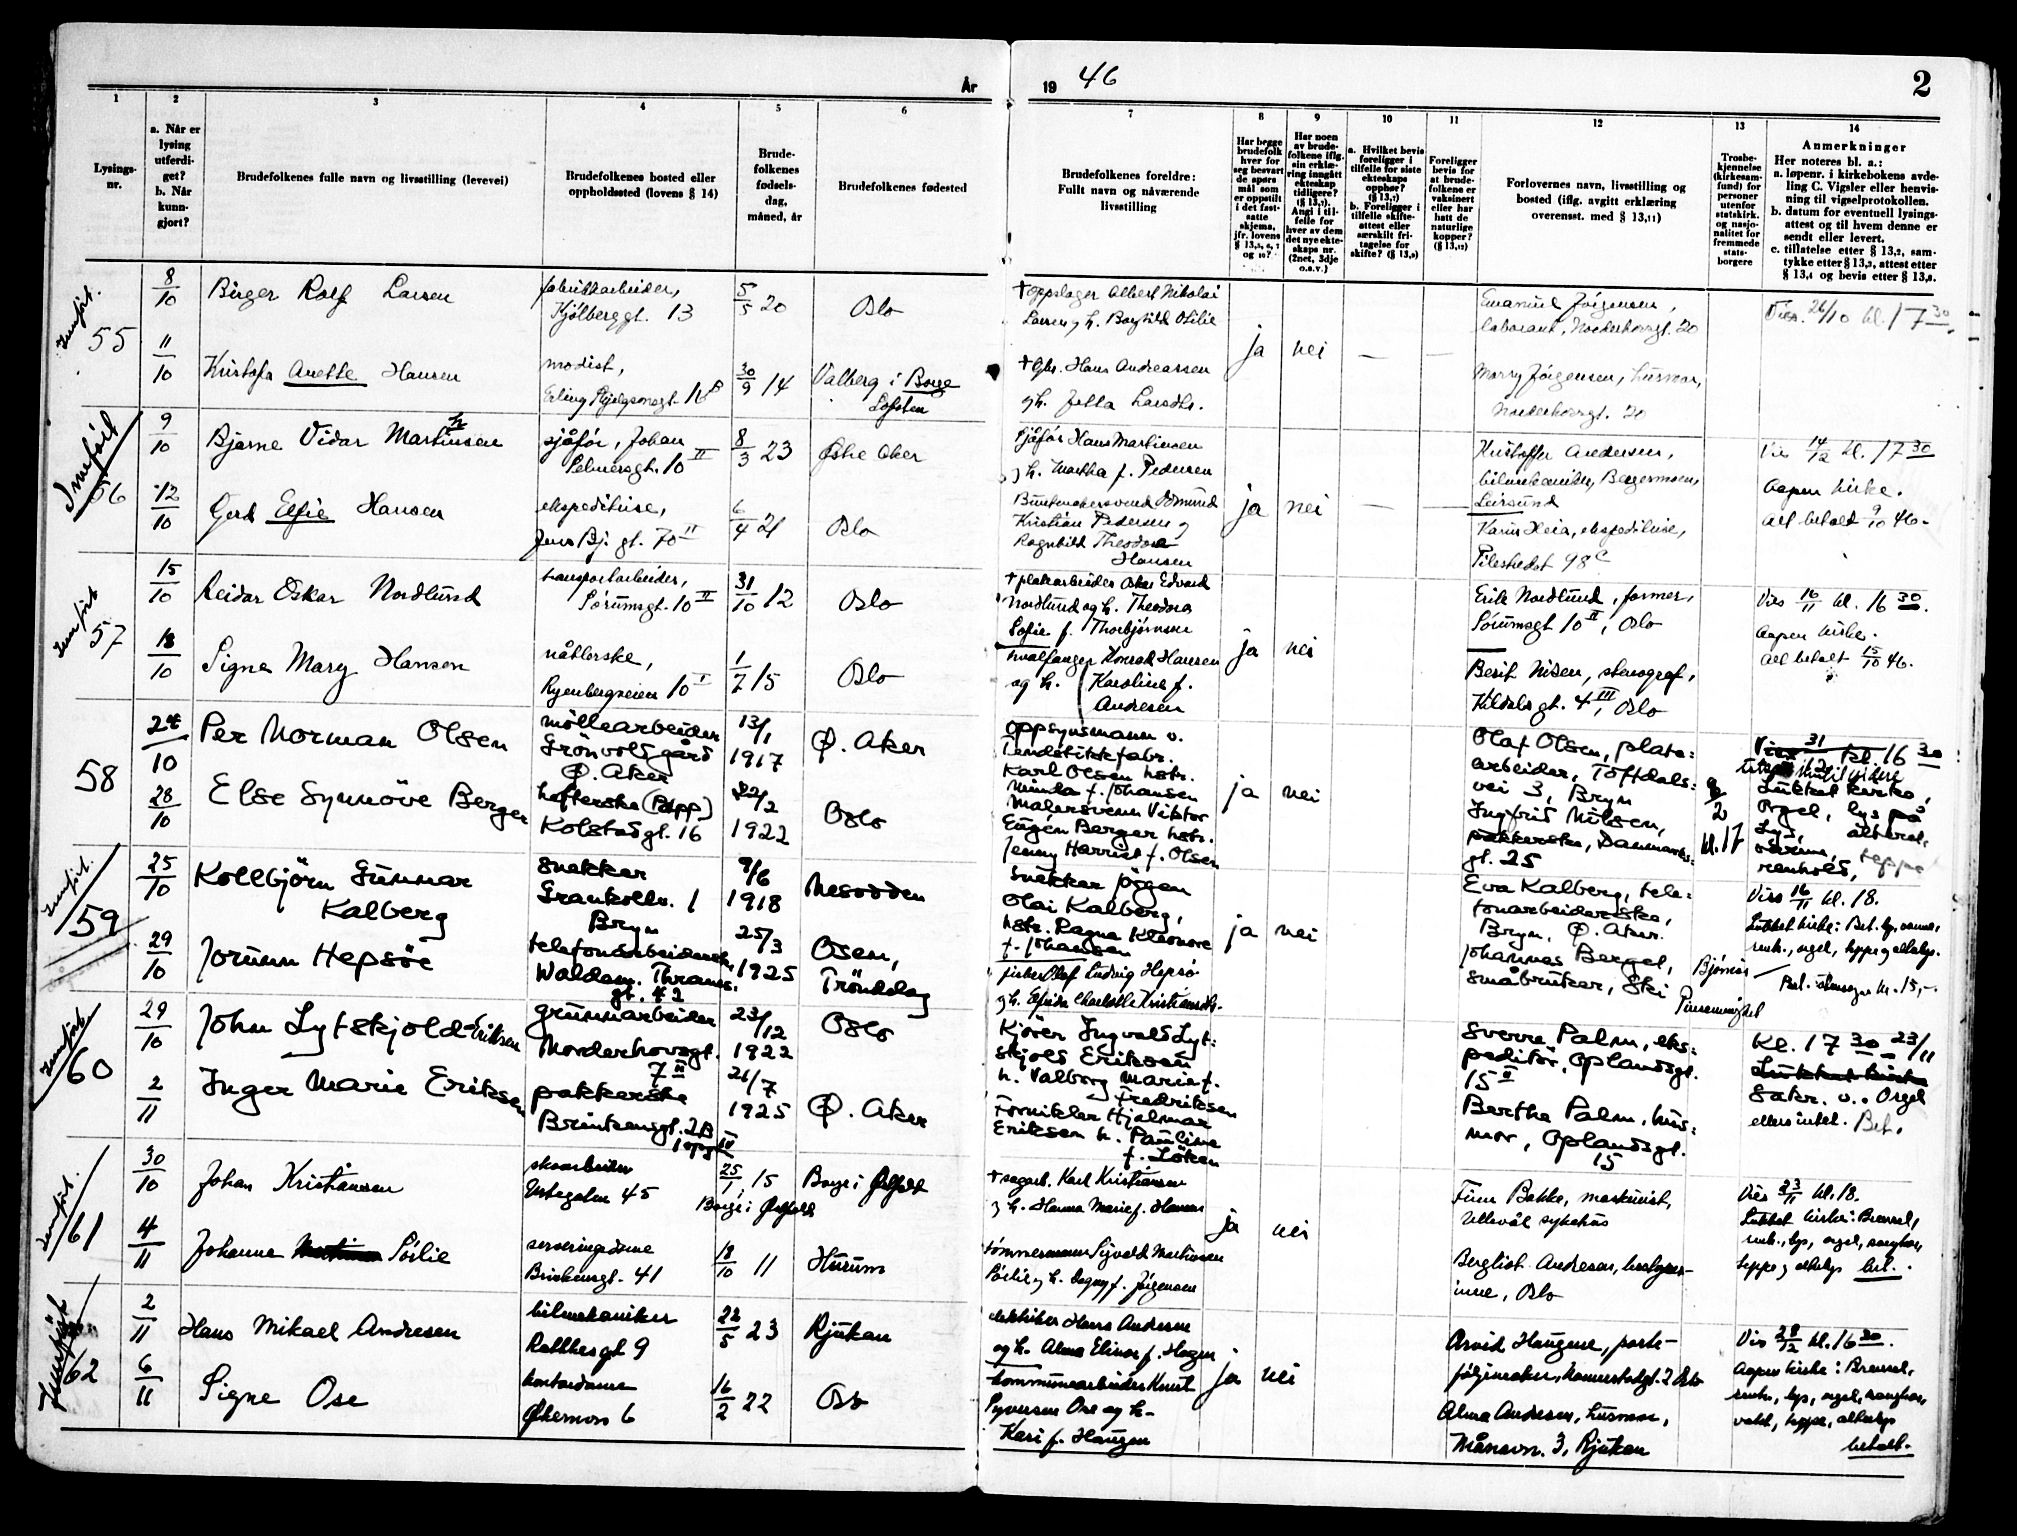 År
19 46
2
1
2
3
4
5
6
7
8
9
10
11
12
13
14
Lysings-
nr.
a. Når er
lysing
utferdi-
get?
b. Når
kunn-
gjort?
Brudefolkenes fulle navn og livsstilling (levevei)
Brudefolkenes bosted eller
oppholdssted (lovens § 14)
Brude-
folkenes
fødsels-
dag,
måned, år
Brudefolkenes fødested
Brudefolkenes foreldre:
Fullt navn og nåværende
livsstilling
Har begge
brudefolk
hver for
seg besvart
de spørs
mål som
er oppstilt
i det fast-
satte
skjema,
jfr. lovens
Har noen
av brude-
folkene iflg.
sin erklæ-
ring inngått
ekteskap
tidligere?
(§ 13,7).
Angi i til-
felle for
hver av dem
det nye ekte-
skaps nr.
(2net, 3dje
o.s.v.)
a. Hvilket bevis
foreligger i
tilfelle for siste
ekteskaps
opphør?
(§ 13,7)
b. Foreligger i
tilfelle skifte-
attest eller
særskilt fri-
tagelse for
skifte? (§ 13,9)
Foreligger
bevis for
at brude-
folkene er
vaksinert
eller har
hatt de
naturlige
kopper?
(§ 13,12)
Forlovernes navn, livsstilling og
bosted (iflg. avgitt erklæring
overensst. med § 13,11)
Trosbe-
kjennelse
(kirkesam-
fund) for
personer
utenfor
statskirk.
og nasjo-
nalitet for
fremmede
stats-
borgere
Anmerkninger
Her noteres bl. a.:
a. løpenr. i kirkebokens avde-
ling C. Vigsler eller henvis-
ning til vigselprotokollen.
b. datum for eventuell lysings-
attest og til hvem denne er
sendt eller levert.
c. tillatelse etter § 13,2, sam-
tykke etter § 13,3, attest etter
§ 13,4 og bevis etter § 13,8.
Innført.
55
8/10
Birger Rolf Larsen
fabrikkarbeider,
Kjølberggt. 13
5/5 20
Oslo
† oppslager Albert Nikolai
Larsen og h. Borghild Otilie
Emanuel Jörgensen,
laborant, Norderhovgt. 20
Vies. 26/10 kl. 17 30
11/10
Kristofa Anette Hansen
modist,
Erling Skjalgsonsgt. 16
30/9 14
Valberg i Borge
Lofoten
† Gbr. Hans Andreassen
og h. Jetta Larsdtr.
ja
nei
Marry Jörgensen, husmor,
Norderhovgt. 20
Innført
56
9/10
Bjarne Vidar Martinsen
sjåfør, Johan
Selmersgt. 10 II
8/3 23
Østre Aker
Sjåfør Hans Martinsen
og h. Martha f. Pedersen
Kristoffer Andersen,
bilmekaniker, Bergermoen,
Leirsund
Vies 14/12 kl. 17 30
12/10
Gerd Elfie Hansen
ekspeditrise,
Jens Bj. gt. 70 II
6/4 21
Oslo
Buntmakersvend Odmund
Kristian Pedersen og
Ragnhild Theodora
Hansen
ja
nei
Karin Heia, ekspeditrise,
Pilestredet 98 c
Aapen kirke.
Alt betalt 9/10 46.
Innført
57
15/10
Reidar Oskar Nordlund
transportarbeider,
Sørumsgt. 10 II
31/10 12
Oslo
† platearbeider Oskar Edvard
Nordlund og h. Theodora
Sofie f. Thorbjørnsen
Erik Nordlund, former,
Sörumsgt 10 II, Oslo
Vies 16/11 kl. 16 30.
18/10
Signe Mary Hansen
nåtlerske,
Ryenbergveien 10 I
1/7 15
Oslo
hvalfanger Konrad Hansen
og h. Karoline f.
Andresen
ja
nei
Berit Nilsen, stenograf,
Kildalsgt. 4 III, Oslo
Aapen kirke.
Alt betalt 15/10 46.
58
24/10
Per Norman Olsen
möllearbeider
Grönvolds gård
Ø. Aker
13/1
1917
Ø. Aker
oppsynsmann v.
Tendstikkfabr.
Karl Olsen hstr.
Minda f. Johansen
Olaf Olsen, plate=
arbeider, Töftdals=
vei 3, Bryn
kl. 16 30
28/10
Else Synnöve Berger
hefterske (Papp)
Kolstadgt. 16
22/2
1922
Oslo
Malersvenn Viktor
Eugén Berger hstr.
Jenny Harriet f. Olsen
ja
nei
Ingfrid Nilsen,
pakkerske, Danmarks=
gt. 25
kl. 17
Lukket kirke,
Orgel, lys på
lys, alterel.
varme, teppe
renhold,
Innført.
59
25/10
Kolbjörn Gunnar
Kalberg
snekker
Grankollv. 1
Bryn
9/6
1918
Nesodden
Snekker Jörgen
Olai Kalberg,
hstr. Ragna Kleonore
f. Johansen
ja
nei
Eva Kalberg, tele=
fonarbeiderske,
Bryn, Ø. Aker.
Vies 16/11 kl. 18.
29/10
Jorunn Hepsöe
telefonarbeiderske
Waldem. Thranes.
gt. 42
25/3
1925
Osen,
Tröndelag
fisker Olaf Ludvig Hepsö
og h. Elfrida Charlotte Kristiansdtr.
Johannes Bergel,
småbruker, Ski
Lukket kirke: Bet. lys, varme,
renh., orgel, teppe og alterlys.
Innført
60
29/10
John Lytskjold-Eriksen
grunnarbeider
Norderhovsgt.
7 II
23/12
1922
Oslo
Kjörer Ingvald Lyt=
skjold Eriksen
h. Valborg Marie f.
Fredriksen
Sverre Palm, eks=
peditör, Oplandsgt.
15 II
Kl. 17 30 23/11
Lukket kirke
2/11
Inger Marie Eriksen
pakkerske
Brinkensgt. 2B
1 opg IV
26/7
1925
Ø. Aker
Fornikler Hjalmar
Eriksen h. Pauline
f. Löken
Bertha Palm, hus=
mor, Oplandsgt.
15
Sakr. v. . Orgel
ellers intet. Bet.
Innført.
61
30/10
Johan Kristiansen
skoarbeider
Enebgaten 45
25/1 15
Borge i Østfold
Borge i Østfold
† sagarb. Karl Kristiansen
og h. Hanna Marie f. Hansen
Finn Bakke, maskinist,
Ullevål sykehus
Vies 23/11 kl. 18.
4/11
Johanne Sörlie
serveringsdame
Brinkensgt. 41
18/10 11
Hurum
tømmermann Sigvald Martinsen
Sörlie og h. Dagny f. Jörgensen
ja
nei
Bergliot Andresen, bestyrer-
inne, Oslo
Lukket kirke: Brensel,
renh., lys, orgel, sanghor,
teppe og alterlys bet.
Innført
62
2/11
Hans Mikael Andresen
bilmekaniker
Rathkesgt 9
22/5 23
Rjukan
elektriker Hans Andresen
og h. Alma Elinor f. Hagen
Arvid Haugene, porte-
føljemaker, 2 Oslo
Vies 28/12 kl. 16 30.
6/11
Signe Ose
kontordame
Økernvn 6
16/2 22
Oslo
kommunearbeider Knut
Syversen Ose og h.
Kari f. Haugen
ja
nei
Alma Andresen, husmor,
Månavn. 3, Rjukan
Aapen kirke: Brensel,
renh., lys, orgel, sanghor,
vakt, teppe, alterlys
betalt.